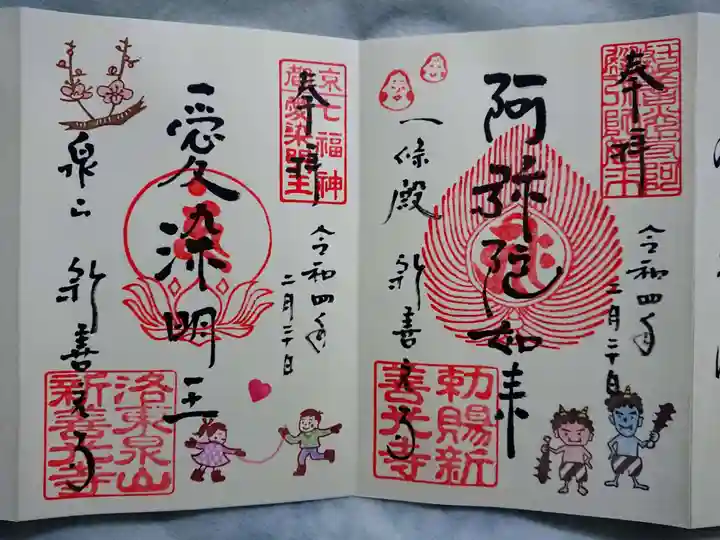 奉拝
令和四年
二月二十日
阿弥陀如来
一條殿 新善光寺
勅賜新
善光寺
奉拝
京七福神
令和四年
二月二十日
愛染明王
泉山 新善光寺
洛東泉山
新善光寺